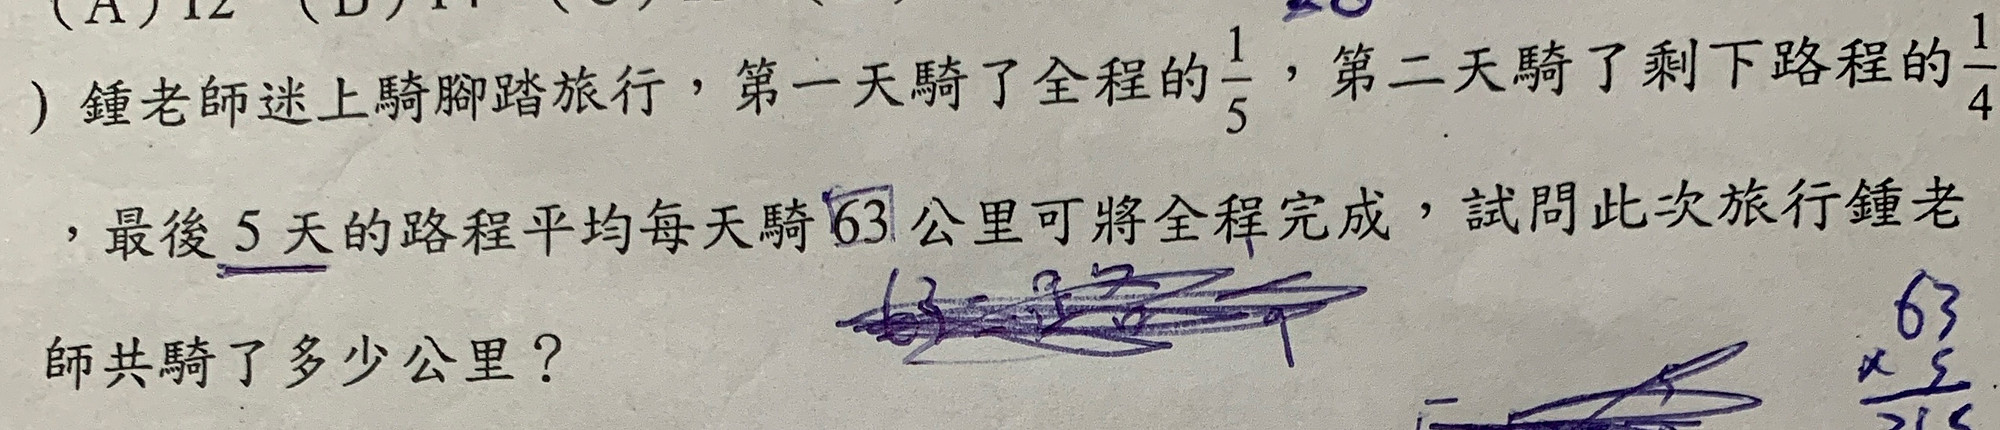 ) 鍾老師迷上騎腳踏旅行，第一天騎了全程的1/5，第二天騎了剩下路程的1/4
，最後5天的路程平均每天騎63公里可將全程完成，試問此次旅行鍾老
師共騎了多少公里？
63
× 5
315